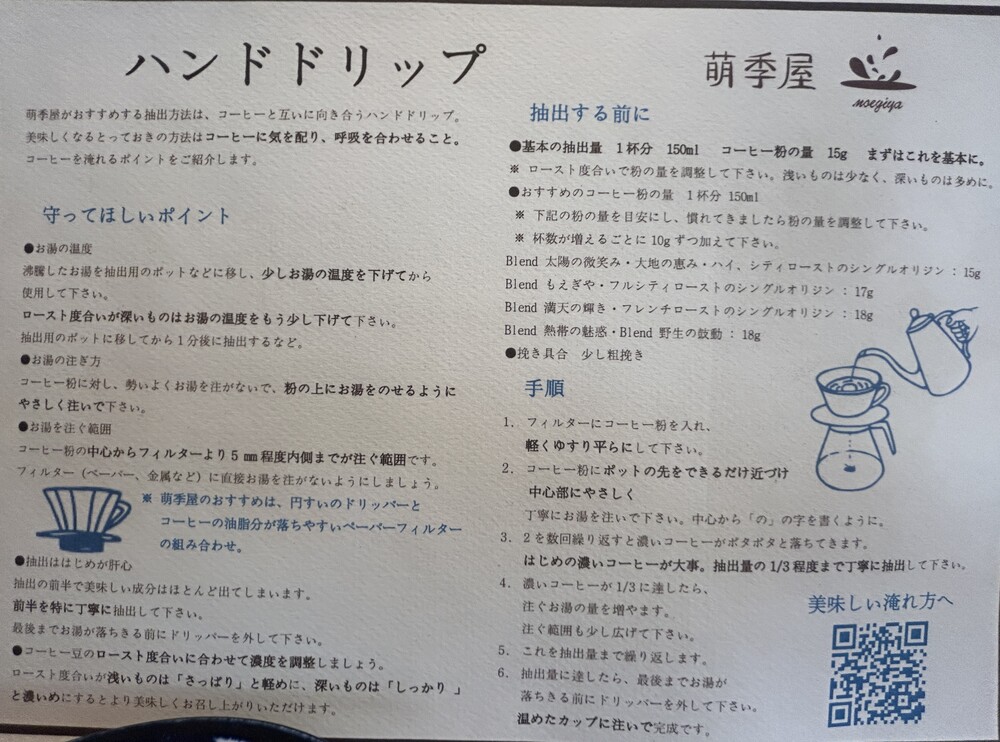 ハンドドリップ
萌季屋がおすすめする抽出方法は、コーヒーと互いに向き合うハンドドリップ。
美味しくなるとっておきの方法はコーヒーに気を配り、呼吸を合わせること。
コーヒーを淹れるポイントをご紹介します。
守ってほしいポイント
●お湯の温度
沸騰したお湯を抽出用のポットなどに移し、少しお湯の温度を下げてから
使用して下さい。
ロースト度合いが深いものはお湯の温度をもう少し下げて下さい。
抽出用のポットに移してから1分後に抽出するなど。
●お湯の注ぎ方
コーヒー粉に対し、勢いよくお湯を注がないで、粉の上にお湯をのせるように
やさしく注いで下さい。
●お湯を注ぐ範囲
コーヒー粉の中心からフィルターより5㎜程度内側までが注ぐ範囲です。
フィルター（ペーパー、金属など）に直接お湯を注がないようにしましょう。
※ 萌季屋のおすすめは、円すいのドリッパーと
コーヒーの油脂分が落ちやすいペーパーフィルター
の組み合わせ。
●抽出ははじめが肝心
抽出の前半で美味しい成分はほとんど出てしまいます。
前半を特に丁寧に抽出して下さい。
最後までお湯が落ちきる前にドリッパーを外して下さい。
●コーヒー豆のロースト度合いに合わせて濃度を調整しましょう。
ロースト度合いが浅いものは「さっぱり」と軽めに、深いものは「しっかり 」
と濃いめにするとより美味しくお召し上がりいただけます。
萌季屋
moegiya
抽出する前に
●基本の抽出量 1杯分 150ml コーヒー粉の量 15g まずはこれを基本に。
※ ロースト度合いで粉の量を調整して下さい。浅いものは少なく、深いものは多めに。
●おすすめのコーヒー粉の量 1杯分 150ml
※ 下記の粉の量を目安にし、慣れてきましたら粉の量を調整して下さい。
※ 杯数が増えるごとに10gずつ加えて下さい。
Blend 太陽の微笑み・大地の恵み・ハイ、シティローストのシングルオリジン：15g
Blend もえぎや・フルシティローストのシングルオリジン：17g
Blend 満天の輝き・フレンチローストのシングルオリジン：18g
Blend 熱帯の魅惑・Blend 野生の鼓動：18g
●挽き具合 少し粗挽き
手順
1. フィルターにコーヒー粉を入れ、
軽くゆすり平らにして下さい。
2. コーヒー粉にポットの先をできるだけ近づけ
中心部にやさしく
丁寧にお湯を注いで下さい。中心から「の」の字を書くように。
3. 2を数回繰り返すと濃いコーヒーがポタポタと落ちてきます。
はじめの濃いコーヒーが大事。抽出量の1/3程度まで丁寧に抽出して下さい。
4. 濃いコーヒーが1/3に達したら、
注ぐお湯の量を増やます。
注ぐ範囲も少し広げて下さい。
5. これを抽出量まで繰り返します。
6. 抽出量に達したら、最後までお湯が
落ちきる前にドリッパーを外して下さい。
温めたカップに注いで完成です。
美味しい淹れ方へ